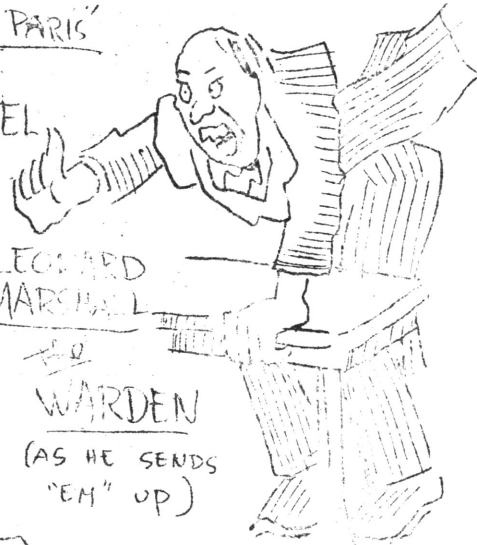 PARIS"
EL
LEONARD
MARSHALL
THE
WARDEN
(AS HE SENDS
"EM" UP)